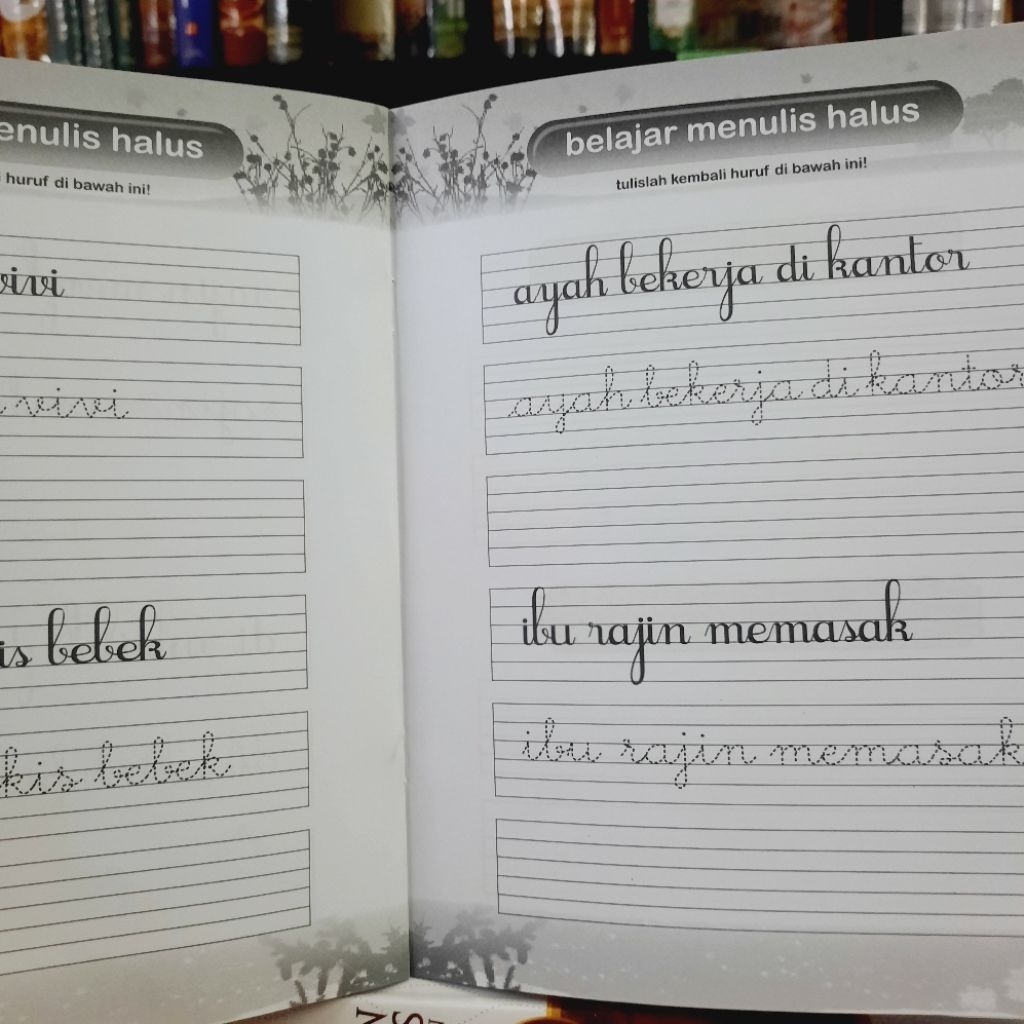 menulis halus
huruf di bawah ini!
vivi
vivi
is bebek
kis bebek
belajar menulis halus
tulislah kembali huruf di bawah ini!
ayah bekerja di kantor
ayah bekerja di kantor
ibu rajin memasak
ibu rajin memasak